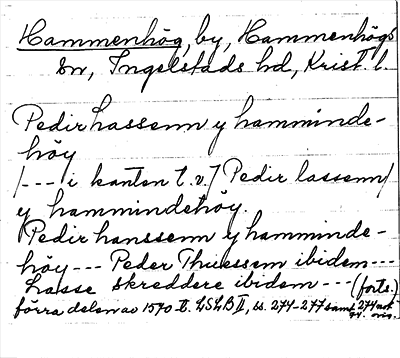 Hammenhög, by, Hammenhögs
sn, Ingelstads hd, Krist. l.
Pedir Lassenn y hamminde-
höy
/--- i kanten t.v./ Pedir lassenn/
y hammindehöy.
Pedir hanssenn y hamminde-
höy --- Peder Thuessem ibidem ---
Lasse skreddere ibidem --- (forts.)
förra delen av 1570-t. LSLB II, ss. 274-277 samt 274 not
orig.